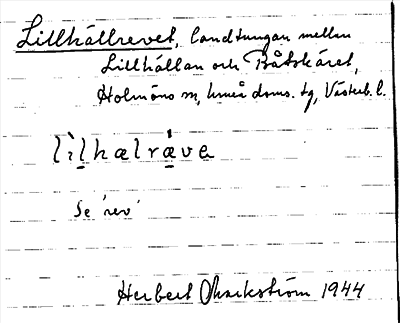 Lillhällrevet, landtungan mellan
Lillhällan och Båtskäret,
Holmöns sn, Umeå doms. tg, Västerb. l.
lìlhælrǻvɐ
Se 'rev'
Herbert Markström 1944